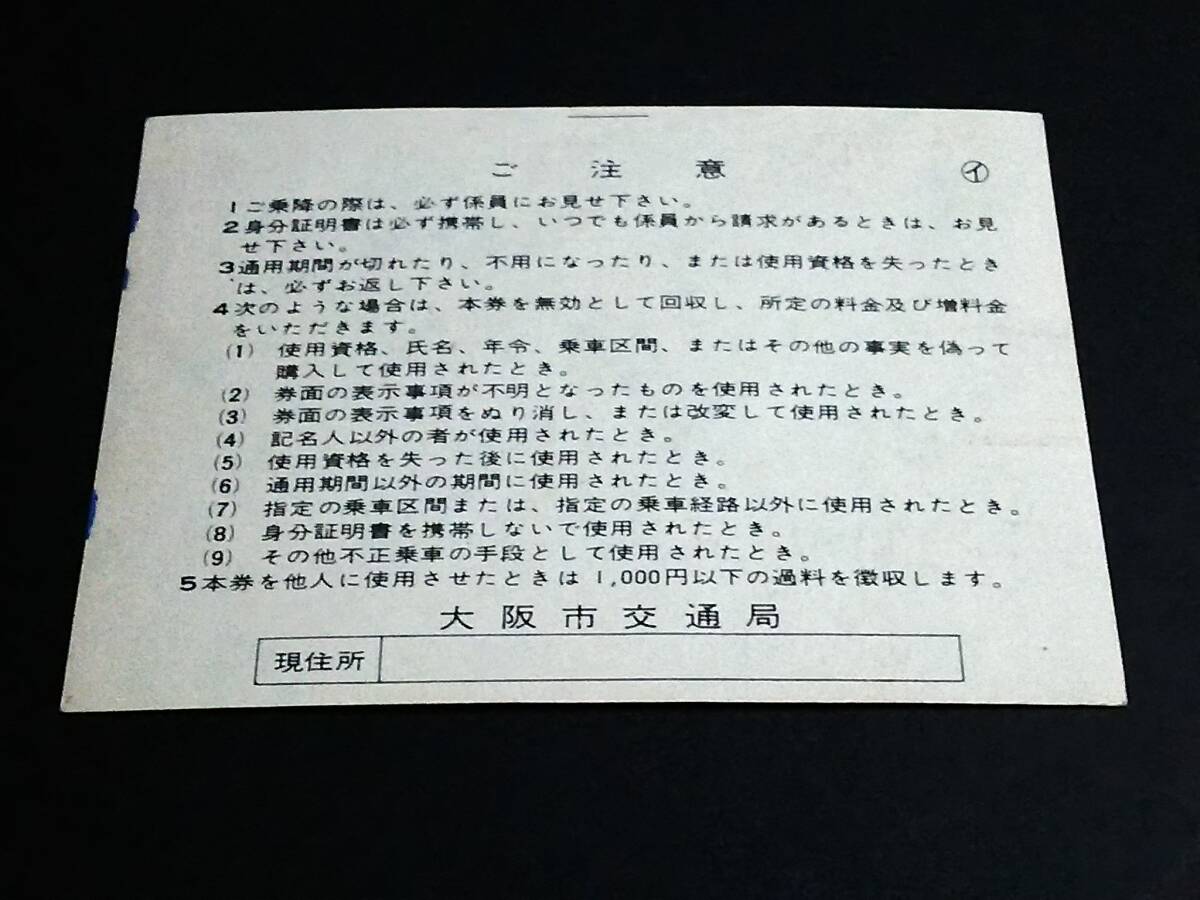 ご注意
㋑
1 ご乗降の際は、必ず係員にお見せ下さい。
2 身分証明書は必ず携帯し、いつでも係員から請求があるときは、お見
せ下さい。
3 通用期間が切れたり、不用になったり、または使用資格を失ったとき
は、必ずお返し下さい。
4 次のような場合は、本券を無効として回収し、所定の料金及び増料金
をいただきます。
(1) 使用資格、氏名、年令、乗車区間、またはその他の事実を偽って
購入して使用されたとき。
(2) 券面の表示事項が不明となったものを使用されたとき。
(3) 券面の表示事項をぬり消し、または改変して使用されたとき。
(4) 記名人以外の者が使用されたとき。
(5) 使用資格を失った後に使用されたとき。
(6) 通用期間以外の期間に使用されたとき。
(7) 指定の乗車区間または、指定の乗車経路以外に使用されたとき。
(8) 身分証明書を携帯しないで使用されたとき。
(9) その他不正乗車の手段として使用されたとき。
5 本券を他人に使用させたときは1,000円以下の過料を徴収します。
大阪市交通局
現住所